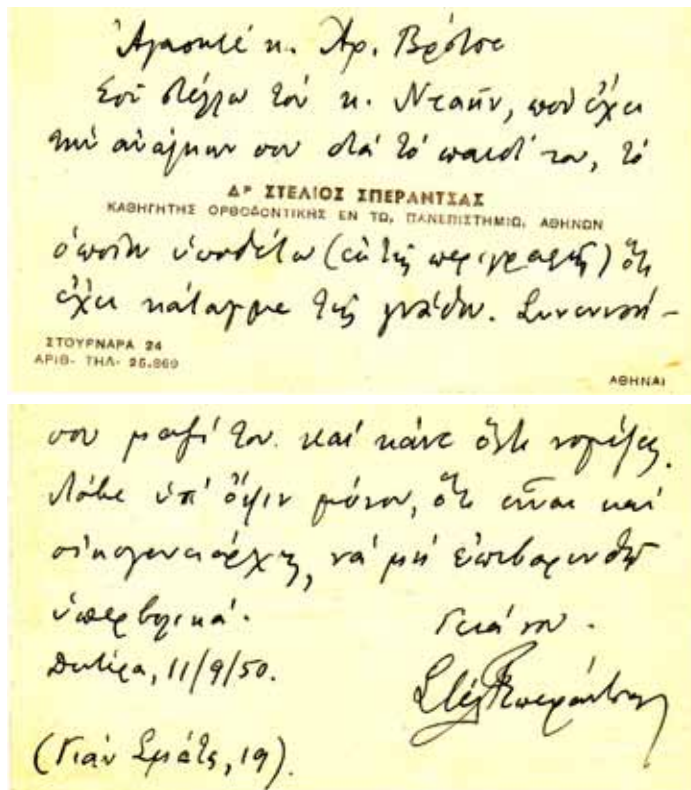 Ἀγαπητέ κ. Χρ. Βρότσε
Σοῦ στέλλω τόν κ. Ντεκῆν, πού ἔχει
τήν ἀνάγκην σου διά τό παιδί του, τό
ΔΡ ΣΤΕΛΙΟΣ ΣΠΕΡΑΝΤΣΑΣ
ΚΑΘΗΓΗΤΗΣ ΟΡΘΟΔΟΝΤΙΚΗΣ ΕΝ ΤΩ, ΠΑΝΕΠΙΣΤΗΜΙΩ, ΑΘΗΝΩΝ
ὁποῖον ὑποθέτω (ἐκ τῆς περιγραφῆς) ὅτι
ἔχει κάταγμα τῆς γνάθου. Συνεννοή-
ΣΤΟΥΡΝΑΡΑ 24
ΑΡΙΘ- ΤΗΛ- 25.869
ΑΘΗΝΑΙ
σου μαζί του καί κάνε ὅ,τι νομίζεις.
Λάβε ὑπ' ὄψιν μόνον, ὅτι εἶναι καί
οἰκογενειάρχης, νά μή ἐπιβαρυνθῇ
ὑπερβολικά.
Γειά σου.
Δευτέρα, 11/9/50.
Στέλ Σπεράντσας
(Γιάν Σμάτς, 19).